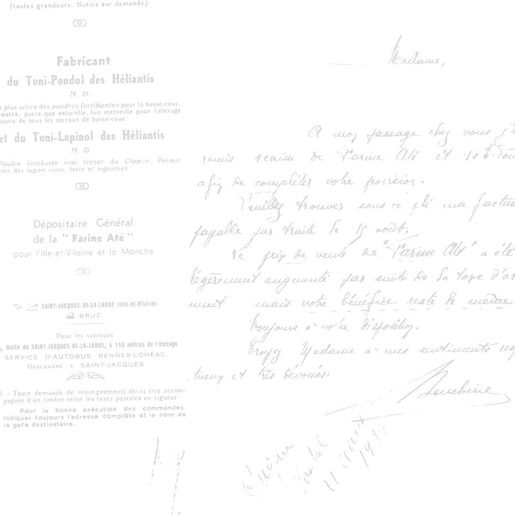 (toutes grandeurs. Notice sur demande)
Fabricant
du Toni-Pondol des Héliantis
M. D.
plus active des poudres fortifiantes pour la basse-cour,
parce que naturelle, fait merveille pour l'élevage
de tous les oiseaux de basse-cour
et du Toni-Lapinol des Héliantis
M. D
Poudre fortifiante vrai trésor du Clapier. Permet
des lapins sains, forts et vigoureux
Dépositaire Général
de la "Farine Até"
pour l'Ille-et-Vilaine et la Manche
SAINT-JACQUES-DE-LA-LANDE (Ille-et-Vilaine)
BRUZ
Pour les visiteurs
Route de SAINT-JACQUES-DE-LA-LANDE, à 150 mètres de l'élevage
SERVICE D'AUTOBUS RENNES-LOHÉAC
Descendre à SAINT-JACQUES
Toute demande de renseignements devra être accom-
pagnée d'un timbre selon les taxes postales en vigueur
Pour la bonne exécution des commandes,
indiquer toujours l'adresse complète et le nom de
la gare destinataire.
Madame,
A mon passage chez vous j'ai
remis de Farine Até et
afin de compléter votre provision.
Veuillez trouver sous ce pli ma facture
payable par traite le 15 août.
Le prix de vente de "Farine Até" a été
légèrement augmenté par suite de la taxe
mais votre bénéfice reste le même
Toujours à votre disposition.
Croyez Madame à mes sentiments
et très dévoués.